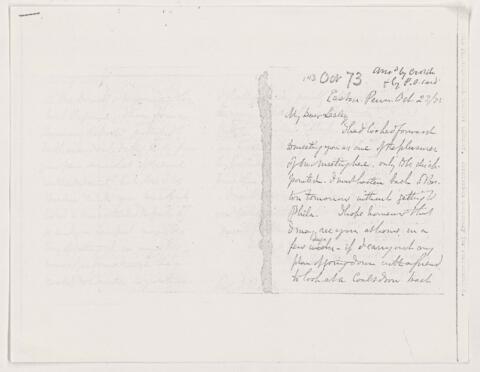 Oct 73 Ansd by
& by P.O. card
Easton. Penn. Oct. 27/73
My dear Lesley
I had looked forward
to meeting you as one of the pleasures
of our meeting here, only to be disap-
pointed. I must hasten back to Bos-
ton tomorrow without getting to
Phila. I hope however that
I may see you at home, in a
few days - if I carry out my
plan of going down with a friend
to look at a Coal & Iron tract